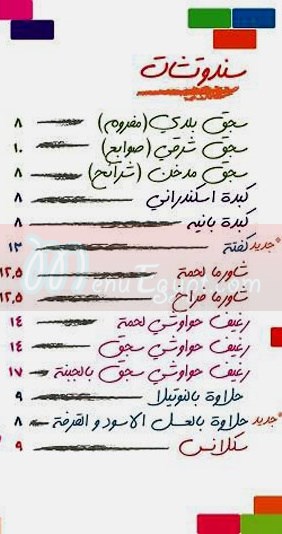 سندوتشات
سجق بلدي (مفروم) ٨
سجق شرقي (صوابع) ١٠
سجق مدخن (شرائح) ٨
كبدة اسكندراني ٨
كبدة بانيه ٨
جديد كفتة ١٣
شاورما لحمة ١٢,٥
شاورما فراخ ١٢,٥
رغيف حواوشي لحمة ١٤
رغيف حواوشي سجق ١٤
رغيف حواوشي سجق بالجبنة ١٧
حلاوة بالنوتيلا ٩
جديد حلاوة بالعسل الاسود و القرفة ٨
سكلانس ٩
MenuEgypt.com